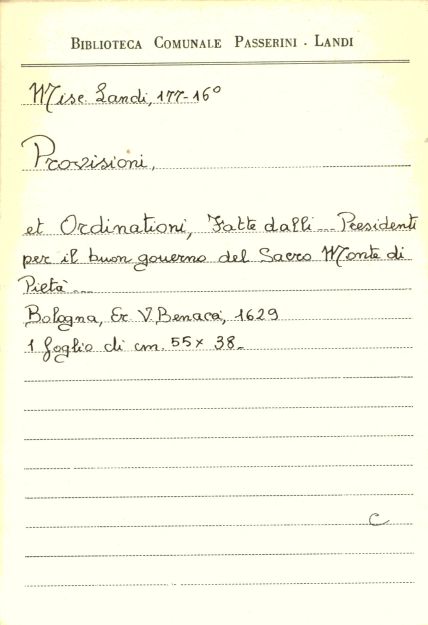 BIBLIOTECA COMUNALE PASSERINI - LANDI
Misc. Landi, 177-16°
Provisioni,
et Ordinationi, Fatte dalli... Presidenti
per il buon governo del Sacro Monte di
Pietà...
Bologna, Er. V. Benacci, 1629
1 foglio di cm. 55 x 38.
C